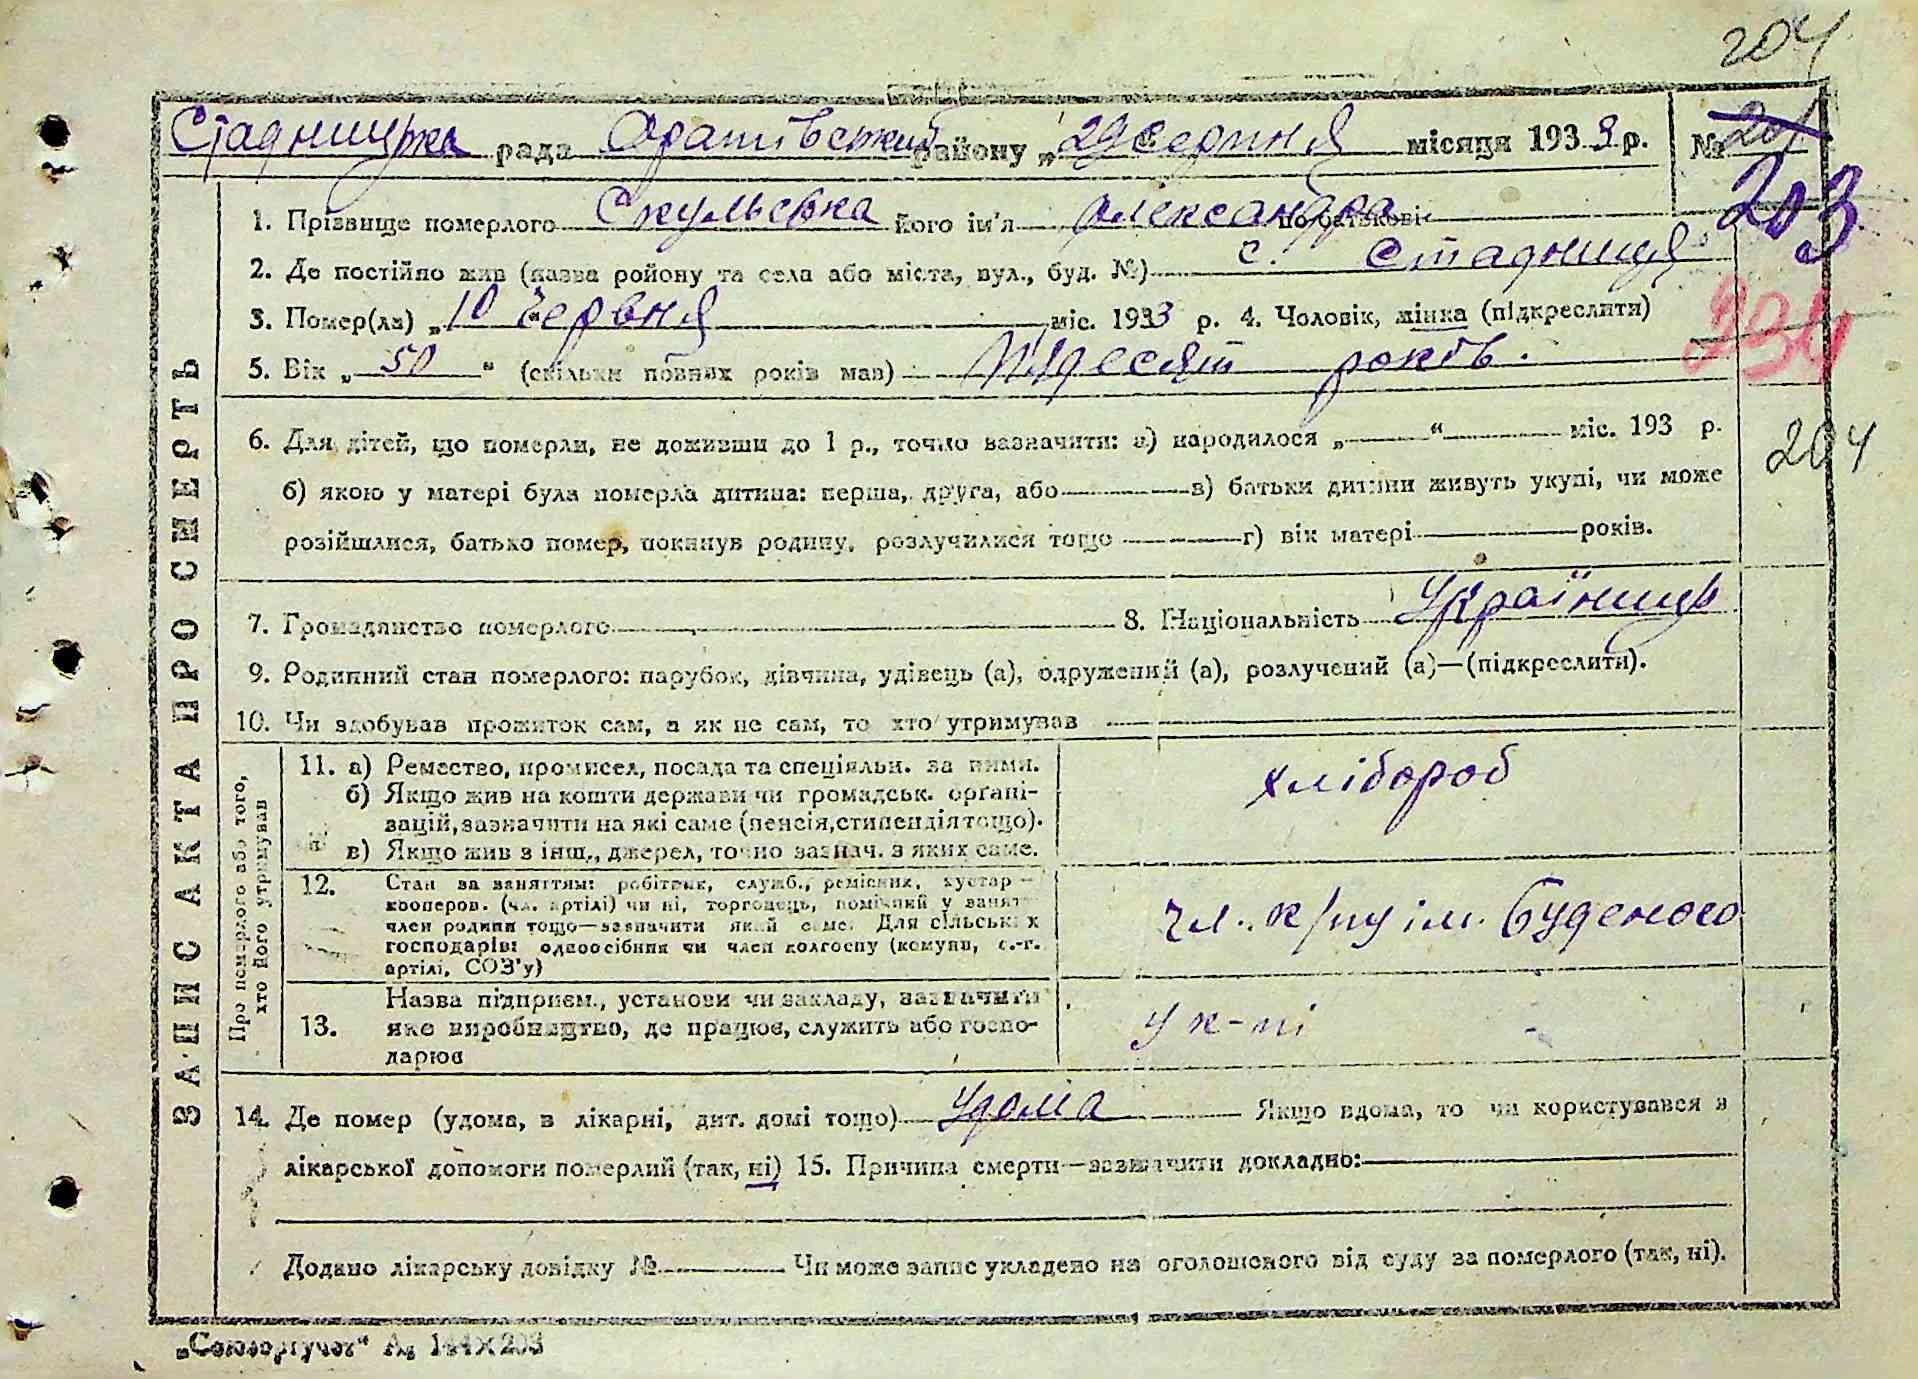 204
Стадницька рада Оратівський району „29 серпня місяця 1933 р. № 201
203
1. Прізвище померлого Скульська його ім'я Александра по батькові
2. Де постійно жив (назва району та села або міста, вул., буд. №) с. Стадниця
3. Помер(ла) „10" червня міс. 1933 р. 4. Чоловік, жінка (підкреслити)
234
5. Вік „50" (скільки повних років мав) П'ядесят років.
6. Для дітей, що померли, не доживши до 1 р., точно зазначити: а) народилося „ " міс. 193 р.
204
б) якою у матері була померла дитина: перша, друга, або в) батьки дитини живуть укупі, чи може
розійшлися, батько помер, покинув родину, розлучилися тощо г) вік матері років.
7. Громадянство померлого 8. Національність Українець
9. Родинний стан померлого: парубок, дівчина, удівець (а), одружений (а), розлучений (а)—(підкреслити).
10. Чи здобував прожиток сам, а як не сам, то хто утримував
Про померлого або того, хто його утримував
11. а) Ремество, промисел, посада та спеціяльн. за ними.
б) Якщо жив на кошти держави чи громадськ. органі-
зацій, зазначити на які саме (пенсія, стипендія тощо).
в) Якщо жив з інш., джерел, точно зазнач. з яких саме.
хлібороб
12. Стан за заняттям: робітник, служб., ремісник, кустар—
кооперов. (чл. артілі) чи ні, торговець, помічний у занятт
член родини тощо—зазначити який саме. Для сільських
господарів: одноосібник чи член колгоспу (комуни, с.-г.
артілі, СОЗ'у)
чл. к/пу ім. Буденого
13. Назва підприєм., установи чи закладу, зазначити
яке виробництво, де працює, служить або госпо-
дарює
у к-пі
14. Де помер (удома, в лікарні, дит. домі тощо) Удома Якщо вдома, то чи користувався з
лікарської допомоги померлий (так, ні) 15. Причина смерти—зазначити докладно:
Додано лікарську довідку № Чи може запис укладено на оголошеного від суду за померлого (так, ні).
ЗАПИС АКТА ПРО СМЕРТЬ
„Союзоргучот" А₅ 144×203